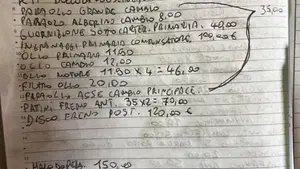 PARAOLIO GRANDE CAMBIO 35,00
PARAOLIO ALBERINO CAMBIO 8,00
GUARNIZIONE SOTTOCARTER PRIMARIA 40,00
INGRANAGGI PRIMARIO COMPENSATORE 100,00€
OLIO PRIMARIO 11,50
OLIO CAMBIO 12,00
OLIO MOTORE 11,50 x 4 = 46,00
FILTRO OLIO 20,00
PARAOLIO ASSE CAMBIO PRINCIPALE
PATINI FRENO ANT. 35x2= 70,00
DISCO FRENO POST. 120,00€
MANODOPERA 150,00